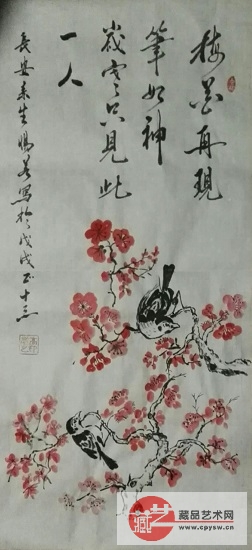 梅花再現
筆如神
歲寒只見此
一人
長安朱生鴨君寫於戊戌正十三
藏品艺术网
www.cpysw.cn